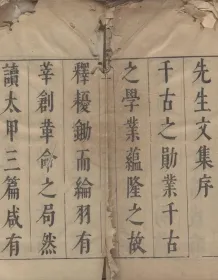 先生文集序
千古之勛業千古
之學業蘊隆之故
釋耰鋤而綸羽有
莘創革命之局然
讀太甲三篇咸有